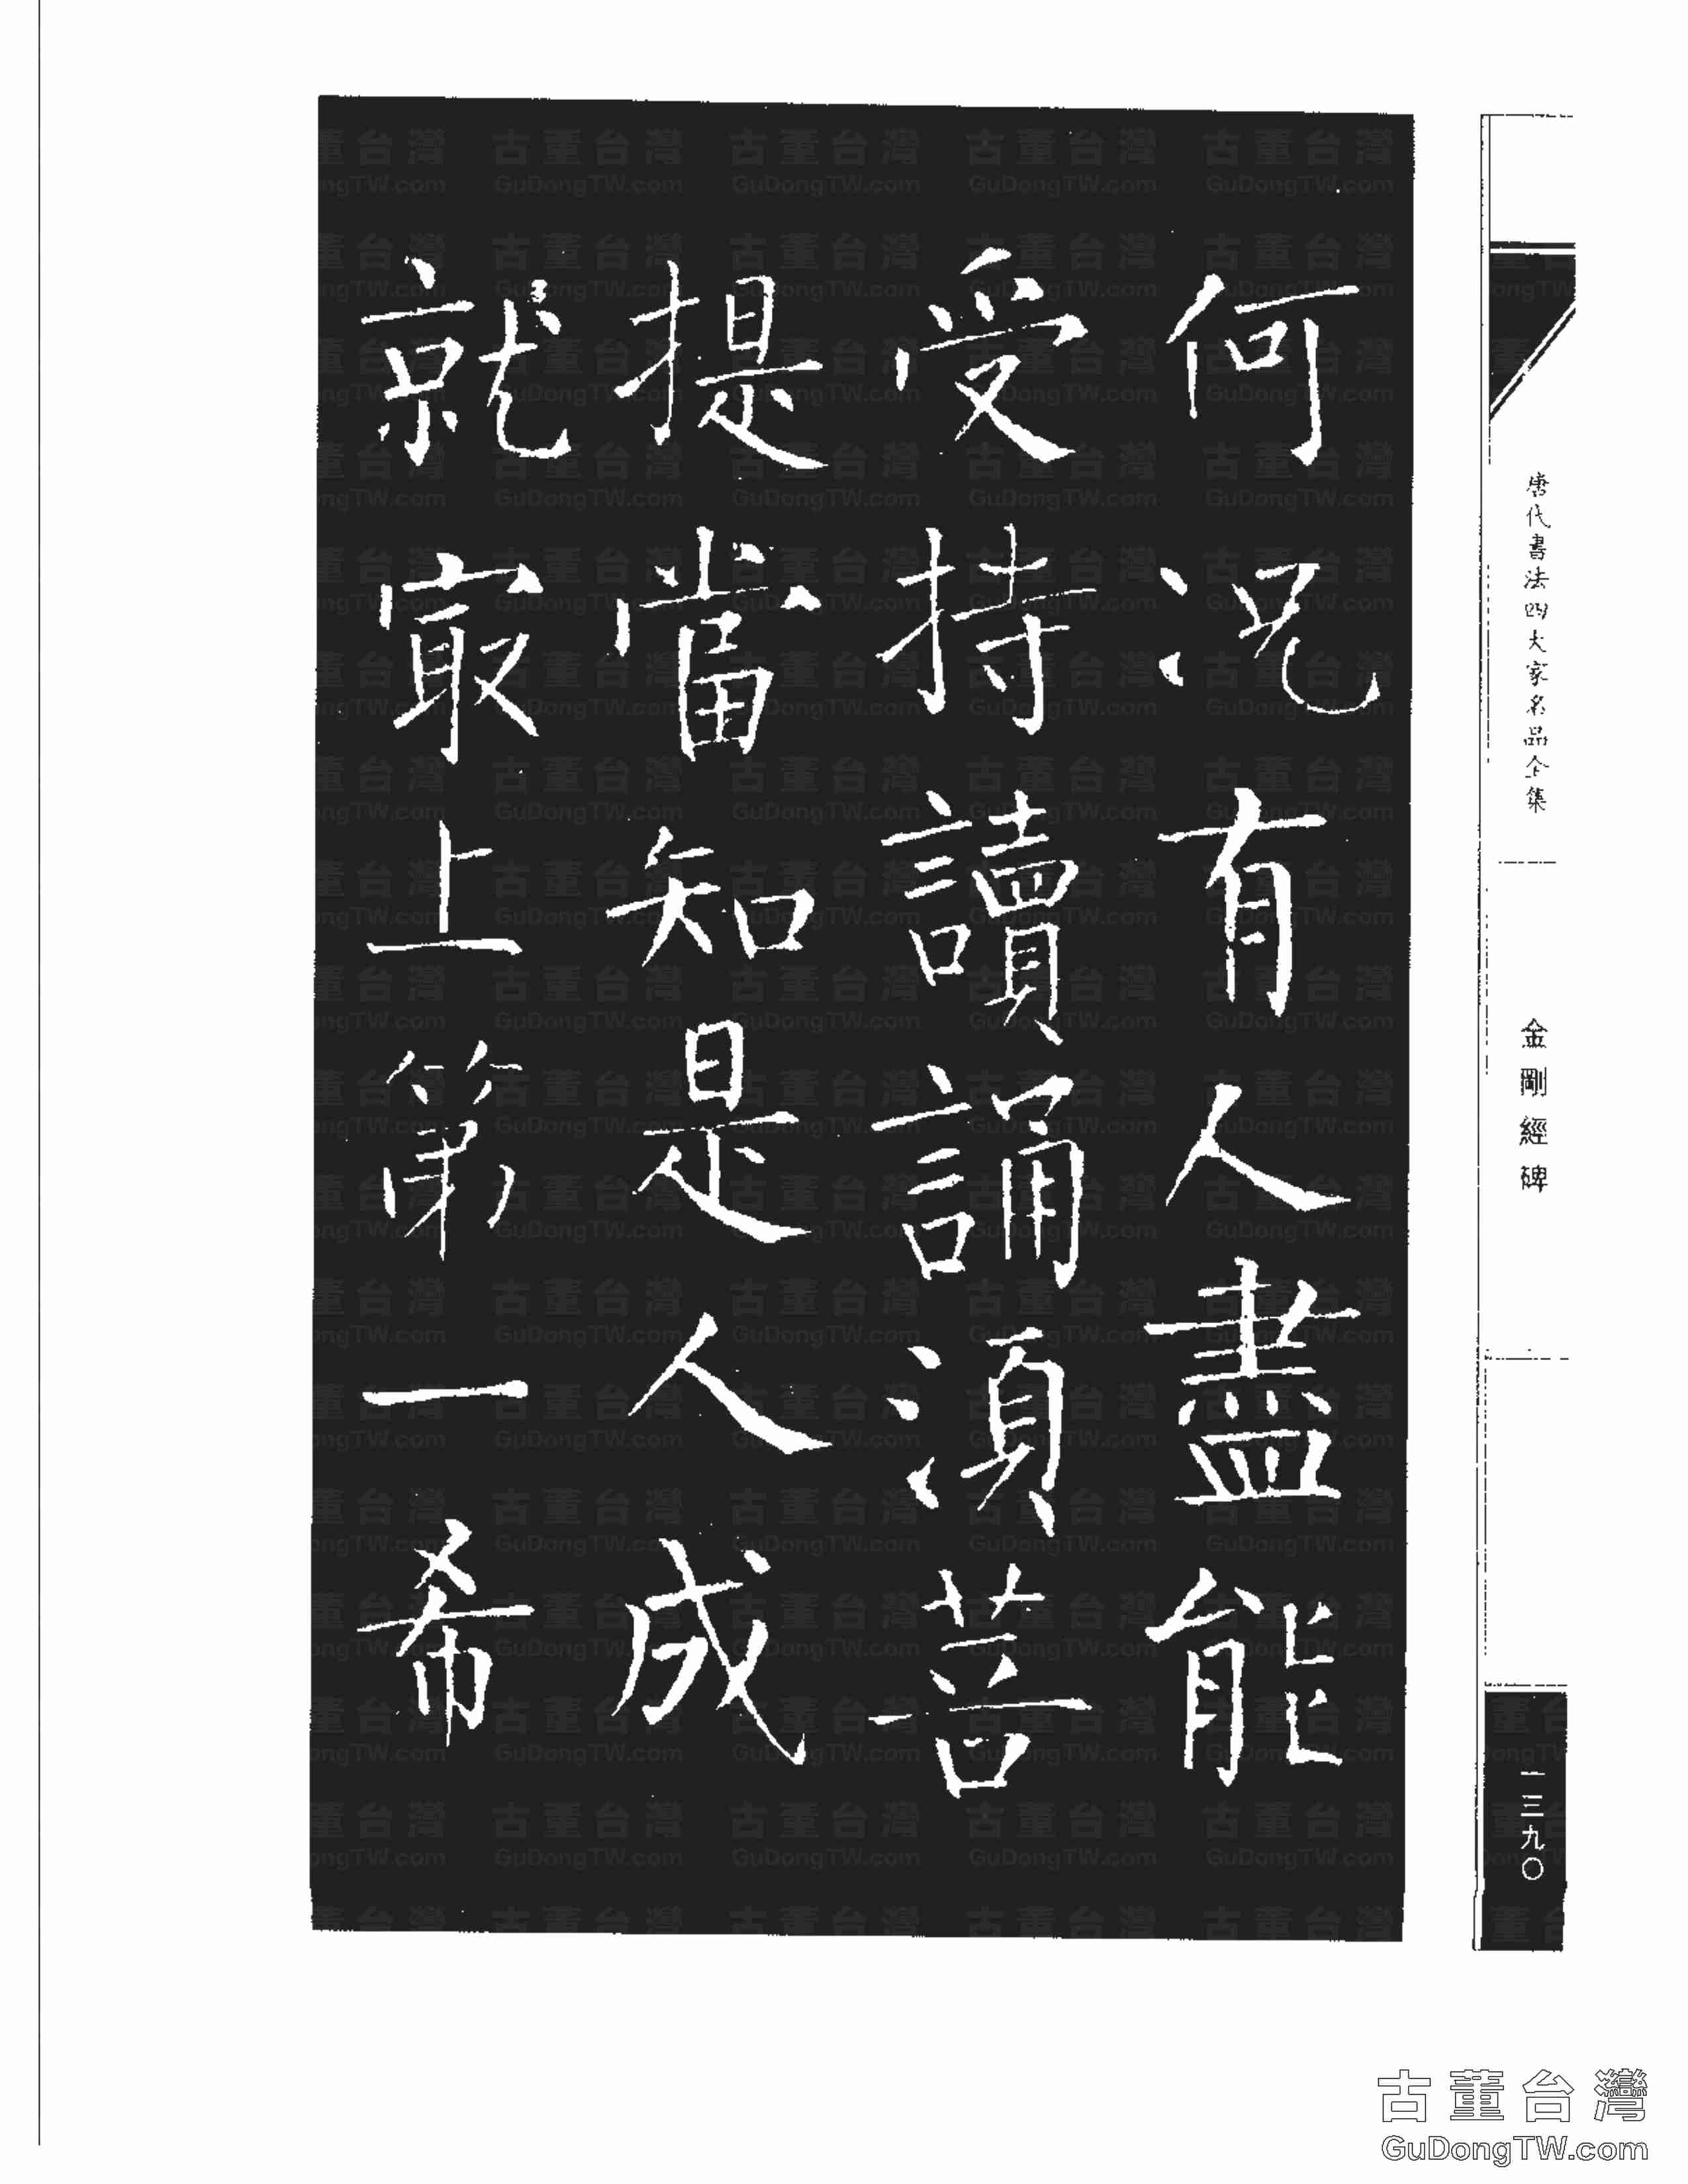 何况有人盡能
受持讀誦湏菩
提當知是人成
就冣上第一希
唐代書法四大家名品全集
金剛經碑
一三九〇
古董台灣
GuDongTW.com